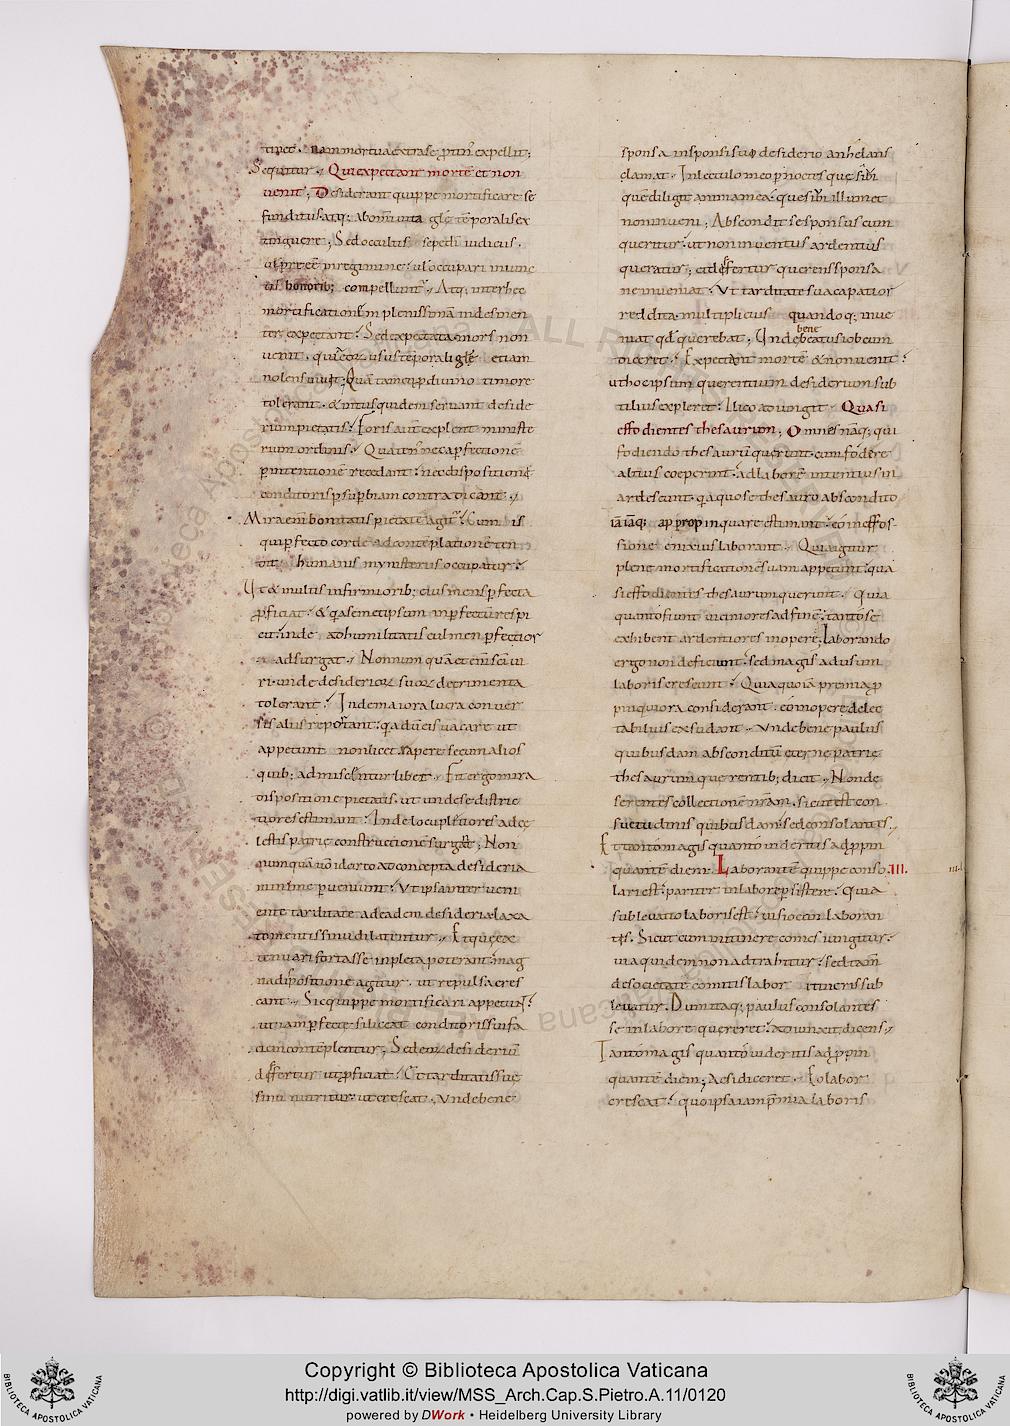 tipet. nam mortua extra se ꝓtin' expellit;
Sequitur. Qui expectant mortē et non
uenit; Desiderant quippe mortificare se
funditus. atq; ab om̄i uita gl̄e tēporalis ex
tinguere; Sed occultis sepe d̄i iudiciis.
mortificationē in plenissima
ter expectant. Sed expectata mors non
uenit. quia
tolerant. & intus quidem seruant deside
rium pietatis. Foris aut̄ explent ministe
rium ordinis.
ꝑ intentionē recedant. nec dispositionē
conditoris ꝑ suꝑbiam contradicant.
Mira
qui ꝑfecto corde ad contēplationē ten
humanis mynisteriis occupatur.
Ut & multis infirmiorib; eius mens ꝑfecta
ꝓficiat. & qa semetipsum inꝑfectū respi
cit. inde ad humilitatis culmen ꝑfectior
adsurgat. Nonnumquā etenī sc̄i ui
ri. unde desiderioꝝ suoꝝ detrimenta
tolerant. Inde maiora lucra conuer
sis aliis reportant. qa dū eis uacare ut
appetunt non licet rapere secum alios
quib; admiscentur libet. Fit ergo mira
dispositione pietatis. ut unde se distric
tiores estimant. Inde locupletiores ad cę
lestis patrię constructionē surgant; Non
numquā uō idcirco ad concepta desideria
minime ꝑueniunt. Ut ipsa interueni
ente tarditate ad eadem desideria laxa
to mentis sinu dilatentur. Et que ex
tenuari fortasse inpleta poterant. mag
na dispositione agitur. ut repulsa cres
cant. Sic quippe mortificari appetunt.
ut iam ꝑfecte si liceat conditoris sui fa
ciem contēplentur; Sed eoꝝ desideriū
differtur ut ꝓficiat. Et tarditatis suę
sinu nutritur. ut crescat. Unde bene
sponsa in sponsi sui desiderio anhelans
clamat. In lectulo meo ꝑ noctes
quē diligit anima mea. quesiui illum et
non inueni; Abscondit se sponsus cum
queritur. ut non inuentus ardentius
queratur; et differtur querens sponsa
ne inueniat. Ut tarditate sua capatior
reddita. multiplicius quandoq; inue
niat qd̄ querebat. Unde beatus iob cum
bene
diceret. Expectant mortē & non uenit.
ut hoc ipsum querentium desiderium sub
tilius expleret. Ilico adiungit. Quasi
effodientes thesaurum; Omnes nāq; qui
fodiendo thesaurū querunt. cum fodere
altius coeperint. ad laborē intentius in
ardescunt. qa quo se thesauro abscondito
iā iāq; appropinquare estimant. eo in effos
sione enixius laborant. Qui igitur
plene mortificationē suam appetunt. qua
si effodientes thesaurum querunt. Quia
quanto fiunt uiciniores ad finē. tanto se
exhibent ardentiores in opere; Laborando
ergo non deficiunt. sed magis ad usum
laboris crescunt. Quia quo iā premia ꝓ
pinquiora considerant. eo in opere delec
tabilius exsudant. Unde bene paulus
quibusdam absconditū eterne patrie
thesaurum querentib; dicit. Non de
serentes collectionē nr̄am. sicut est con
suetudinis quibusdam. sed consolantes.
Et tanto magis quanto uideritis adꝓpin
quantē diem. Laborantē quippe conso III.
lari est. pariter in labore ꝑsistere. Quia
subleuatio laboris est. uisio conlaboran
tis. Sicut cum in itinere comes iungitur.
uia quidem non adtrahitur. sed tam̄
de societate comitis labor itineris sub
leuatur. Dum itaq; paulus consolantes
se in labore quereret. adiunxit dicens.
Tanto magis quanto uideritis adꝓpin
quantē diem; Ac si diceret. Eo labor
crescat. quo ipsa iam p̄mia laboris
Copyright © Biblioteca Apostolica Vaticana
http://digi.vatlib.it/view/MSS_Arch.Cap.S.Pietro.A.11/0120
powered by DWork • Heidelberg University Library